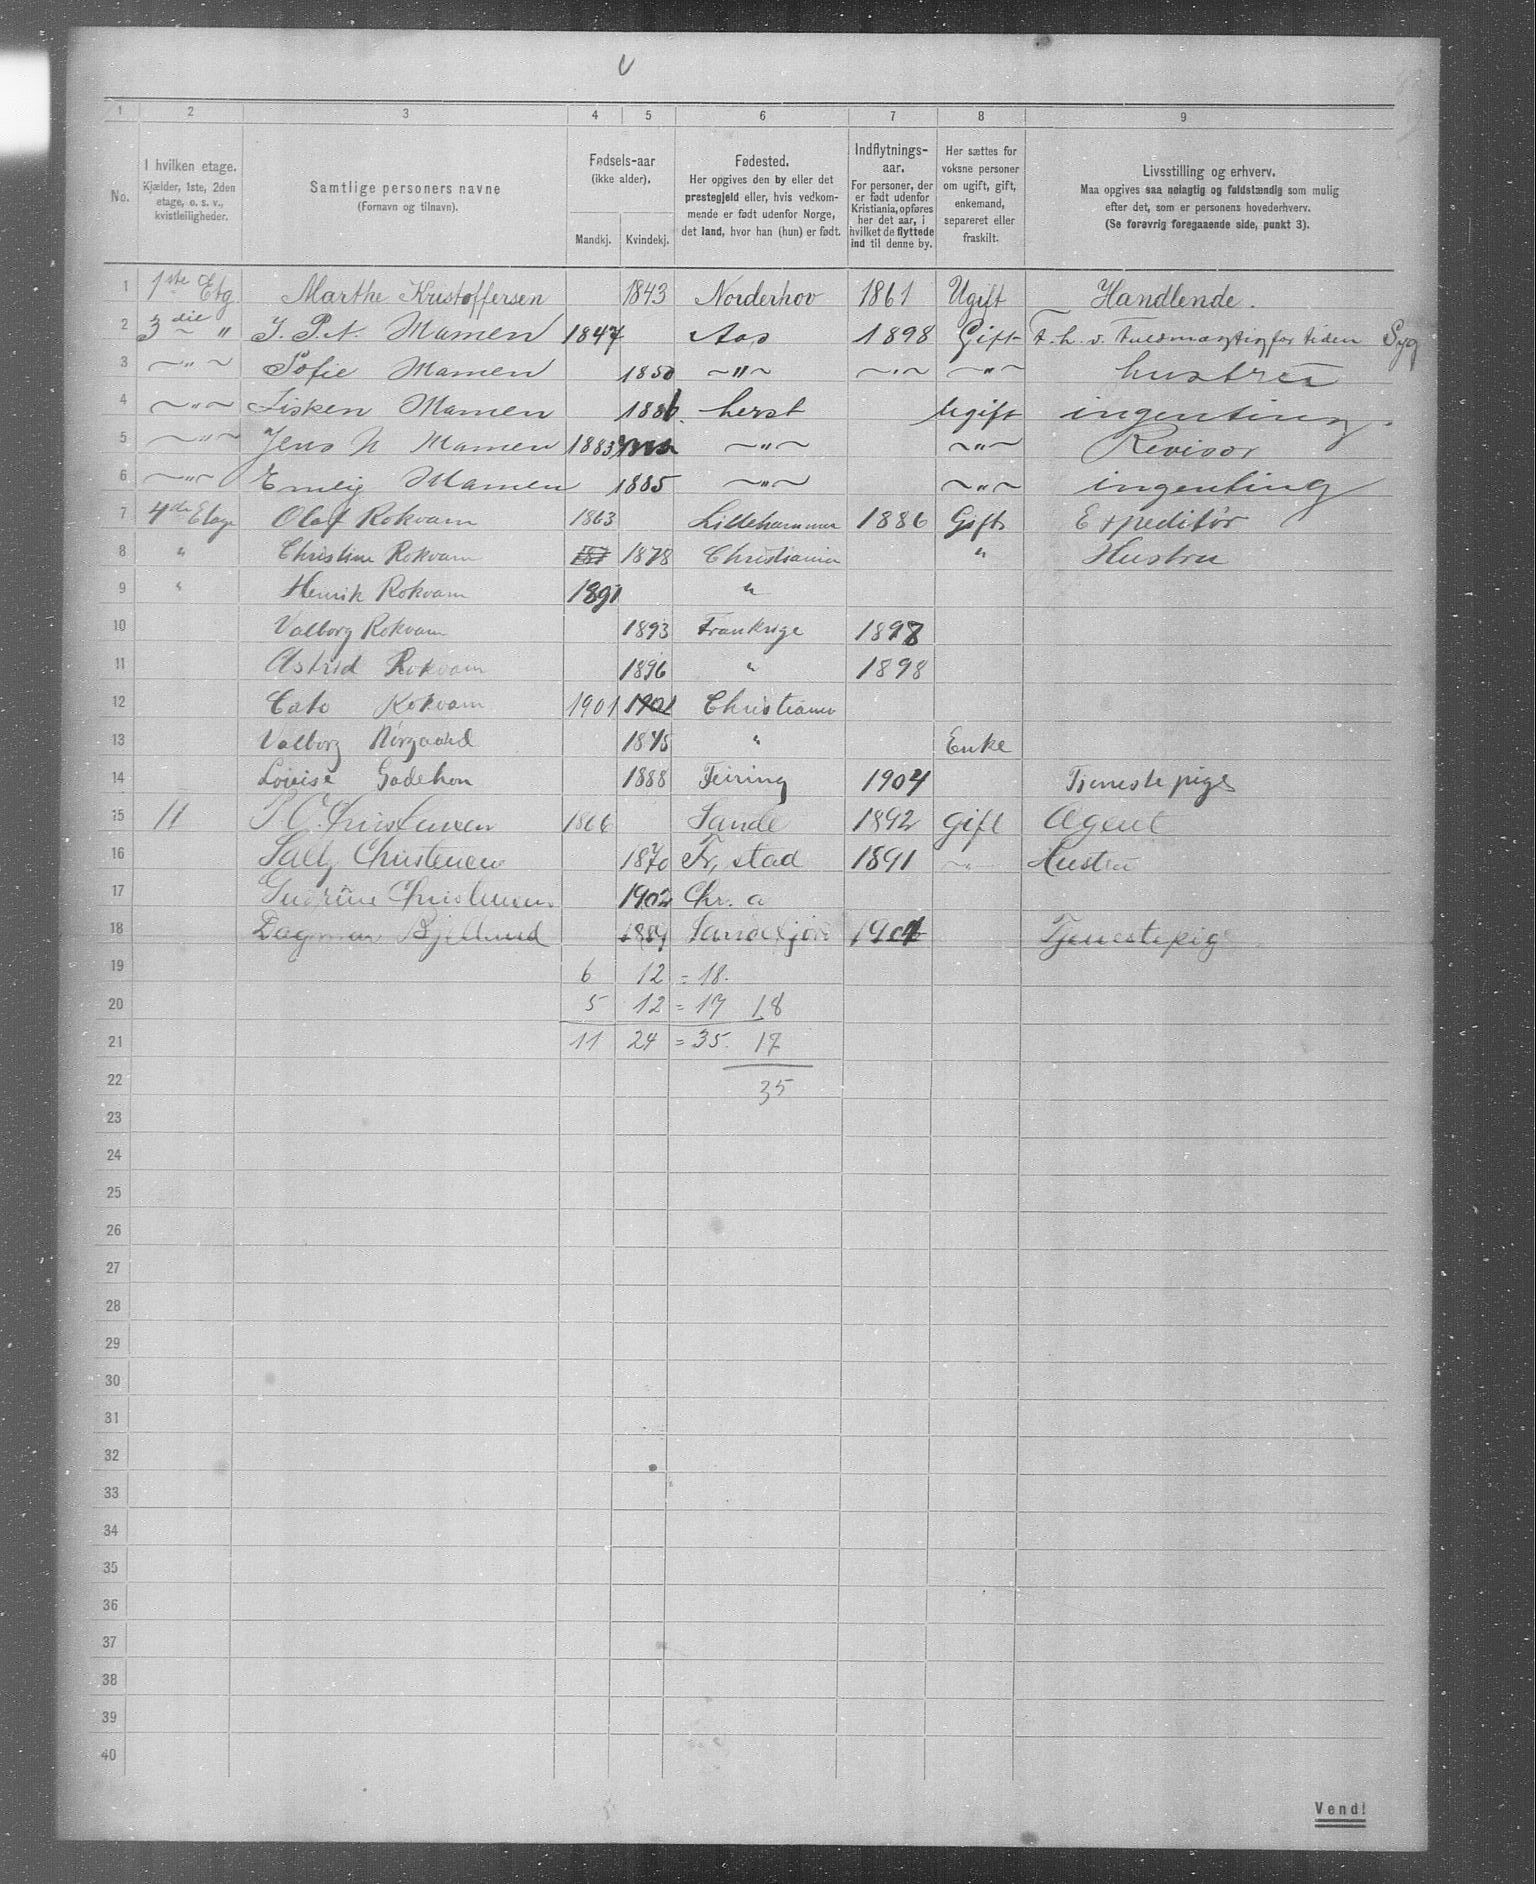 1 2 3 4 5 6 7 8 9
No.
I hvilken etage.
Kjælder, 1ste, 2den
etage, o. s. v.,
kvistleiligheder.
Samtlige personers navne
(Fornavn og tilnavn).
Fødsels-aar
(ikke alder).
Mandkj. Kvindekj.
Fødested.
Her opgives den by eller det
prestegjeld eller, hvis vedkom-
mende er født udenfor Norge,
det land, hvor han (hun) er født.
Indflytnings-
aar.
For personer, der
er født udenfor
Kristiania, opføres
her det aar, i
hvilket de flyttede
ind til denne by.
Her sættes for
voksne personer
om ugift, gift,
enkemand,
separeret eller
fraskilt.
Livsstilling og erhverv.
Maa opgives saa nøiagtig og fuldstændig som mulig
efter det, som er personens hovederhverv.
(Se forøvrig foregaaende side, punkt 3).
1 1ste Etg. Marthe Kristoffersen 1843 Norderhov 1861 Ugift Handlende.
2 3die " J. P. A. Mamen 1847 Aas 1898 Gift F. h. v. Fuldmægtig for tiden Syg
3 ~"~ Sofie Mamen 1850 ~"~ ~"~ ~"~ hustru
4 ~"~ Lisken Mamen 1881 herst Ugift ingenting.
5 ~"~ Jens N Mamen 1883 ~"~ ~"~ Revisor
6 ~"~ Emelig Mamen 1885 ~"~ ~"~ ingenting
7 4de Etage Olaf Rokvam 1863 Lillehammer 1886 Gift Expeditør
8 " Christine Rokvam 1878 Christiania " Hustru
9 " Henrik Rokvam 1891 "
10 Valborg Rokvam 1893 Frankrige 1898
11 Astrid Rokvam 1896 " 1898
12 Cato Rokvam 1901 1901 Christiania
13 Valborg Nørgaard 1875 " Enke
14 Lovise Godehon 1888 Feiring 1904 Tjenestepige
15 11 P C. Christensen 1866 Sande 1892 Gift Agent
16 Sally Christensen 1870 Fr, stad 1891 ~"~ Hustru
17 Gudrun Christensen 1902 Chr. a
18 Dagmar Bjellund 1889 Sandefjord 1904 Tjenestepige
19 6 12 = 18.
20 5 12 = 17 18
21 11 24 = 35. 17
22 35
23
24
25
26
27
28
29
30
31
32
33
34
35
36
37
38
39
40
Vend!